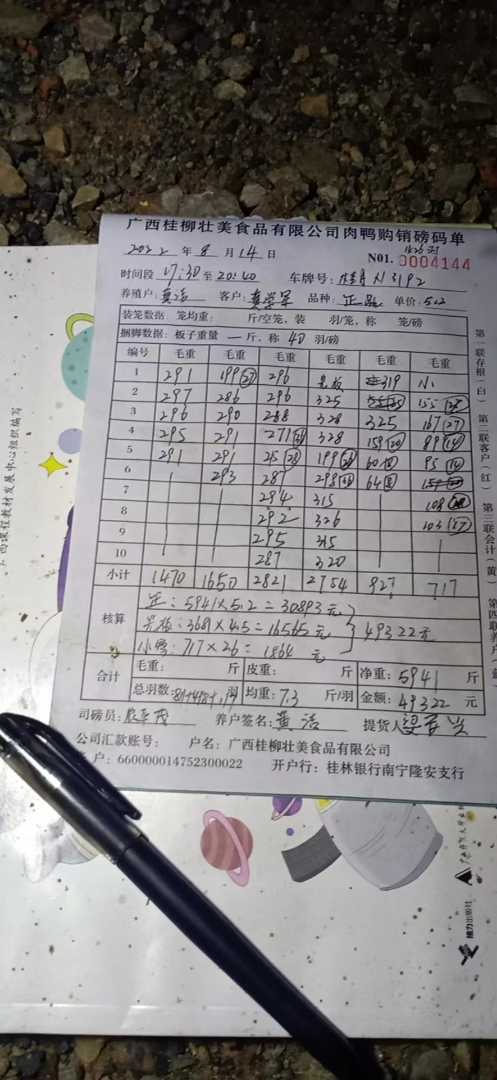 广西桂柳壮美食品有限公司肉鸭购销磅码单
2022 年 8 月 14 日 N01. 0004144
时间段 17:38 至 20:40 车牌号: 3192
养殖户: 黄洁 客户: 品种: 正 单价: 5.2
装笼数据: 笼均重: 斤/空笼、装 羽/笼, 称 笼/磅
捆脚数据: 板子重量 一 斤, 称 40 羽/磅
编号 毛重 毛重 毛重 毛重 毛重 毛重
1 291 199 (27) 296 319 小
2 297 286 296 325 155
3 296 290 288 328 325 167 (27)
4 295 291 271 328 159 89 (14)
5 291 291 215 199 60 95
6 293 287 298 64
7 294 315 108
8 292 326 103 (17)
9 295 315
10 287 320
小计 1470 1650 2821 2754 927 717
核算
正: 5941×5.2=30893元
3681×4.5=16565元 49322元
小: 717×2.6=1864 元
合计 毛重: 斤 皮重: 斤 净重: 5941 斤
总羽数: 羽 均重: 7.3 斤/羽 金额: 49322 元
司磅员: 养户签名: 黄洁 提货人
公司汇款账号: 户名: 广西桂柳壮美食品有限公司
户: 660000014752300022 开户行: 桂林银行南宁隆安支行
第一联存根(白)
第二联客户(红)
第三联会计(黄
第四联
西课程教材发展中心组织编写
接力出版社